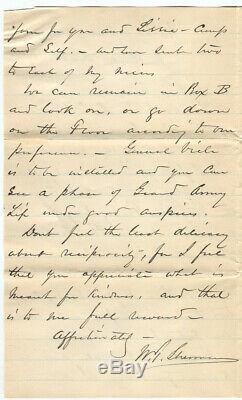 for you and Lizzie - Camp
and Self. - and have sent two
to each of my nieces
We can remain in Box B
and look on, or go down
on the Floor according to our
preference. - General Viele
is to be installed and you can
see a phase of Grand Army
Life under good auspices.
Dont feel the least delicacy
about reciprocity, for I feel
that you appreciate what is
meant for kindness, and that
is to me full reward
Affectionately -
W. T. Sherman